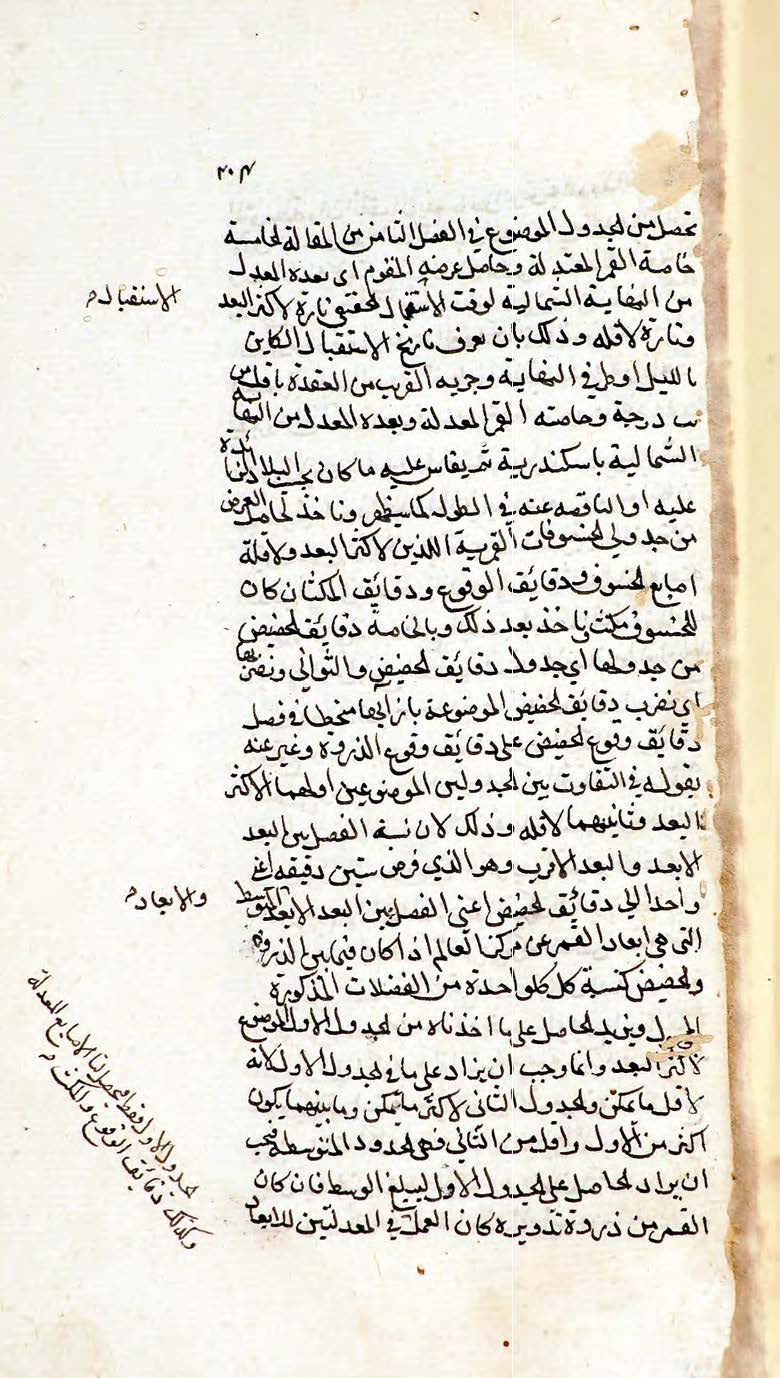 ٢٠٣
تحصل من الجدول الموضوع في الفصل الثامن من المقالة الخامسة
خاصة القمر المعتدلة وحاصل عرضه المقوم اى بعده المعدل
من النهاية الشمالية لوقت الاستقبال الحقيقي تارة لاكثر البعد
الاستقبال
وتارة لاقله وذلك بان نعرف تاريخ الاستقبال الكاين
بالليل اوطرفي النهاية وجزيه القريب من العقدة باقل من
درجة وخاصته القمر المعدلة وبعده المعدل من النهاية
الشمالية باسكندرية ثم يقاس عليه ما كان بحسب البلاد الزائدة
عليه او الناقصه عنه في الطول كما سيظهر وناخذ لحاصل العرض
من جدولي الخسوفات القمرية اللذين لاكثر البعد ولاقله
اصابع الخسوف ودقائق الوقوع ودقائق المكث ان كان
للخسوف مكث وناخذ بعد ذلك وبالخاصة دقائق الحضيض
من جدولها اى جدول دقائق الحضيض والثواني ونضربها
اى نضرب دقائق الحضيض الموضوعة بازايها منحطا في فصل
دقائق وقوع الحضيض على دقائق وقوع الذروة وغير عنه
بقوله في التفاوت بين الجدولين الموضوعين اولهما لاكثر
البعد وثانيهما لاقله وذلك لان نسبة الفصل بين البعد
الابعد والبعد الاقرب وهو الذي فرض ستين دقيقه اعني
واحدا الى دقائق الحضيض اعني الفصل بين البعد الابعد المتوسط
والابعاد
التى هى ابعاد القمر عن مركز العالم اذا كان فيما بين الذروة
والحضيض كنسبة كل واحدة من الفضلات المذكورة
ونزيد الحاصل على ما اخذناه من الجدول الاول الموضوع
لاكثر البعد وانما وجب ان يزاد على ما في الجدول الاول لانه
لاقل ما يمكن والجدول الثانى لاكثر ما يمكن وما بينهما يكون
اكثر من الاول واقل من الثاني فهى الحدود المتوسطه فيجب
ان يزاد الحاصل على الجدول الاول ليبلغ الوسط فان كان
القمر من ذروة تدويره كان العمل في المعدلتين للابعاد
الجدول الاول فقط فيحصل لنا الاصابع المعدلة
وكذلك دقائق الوقوع والمكث